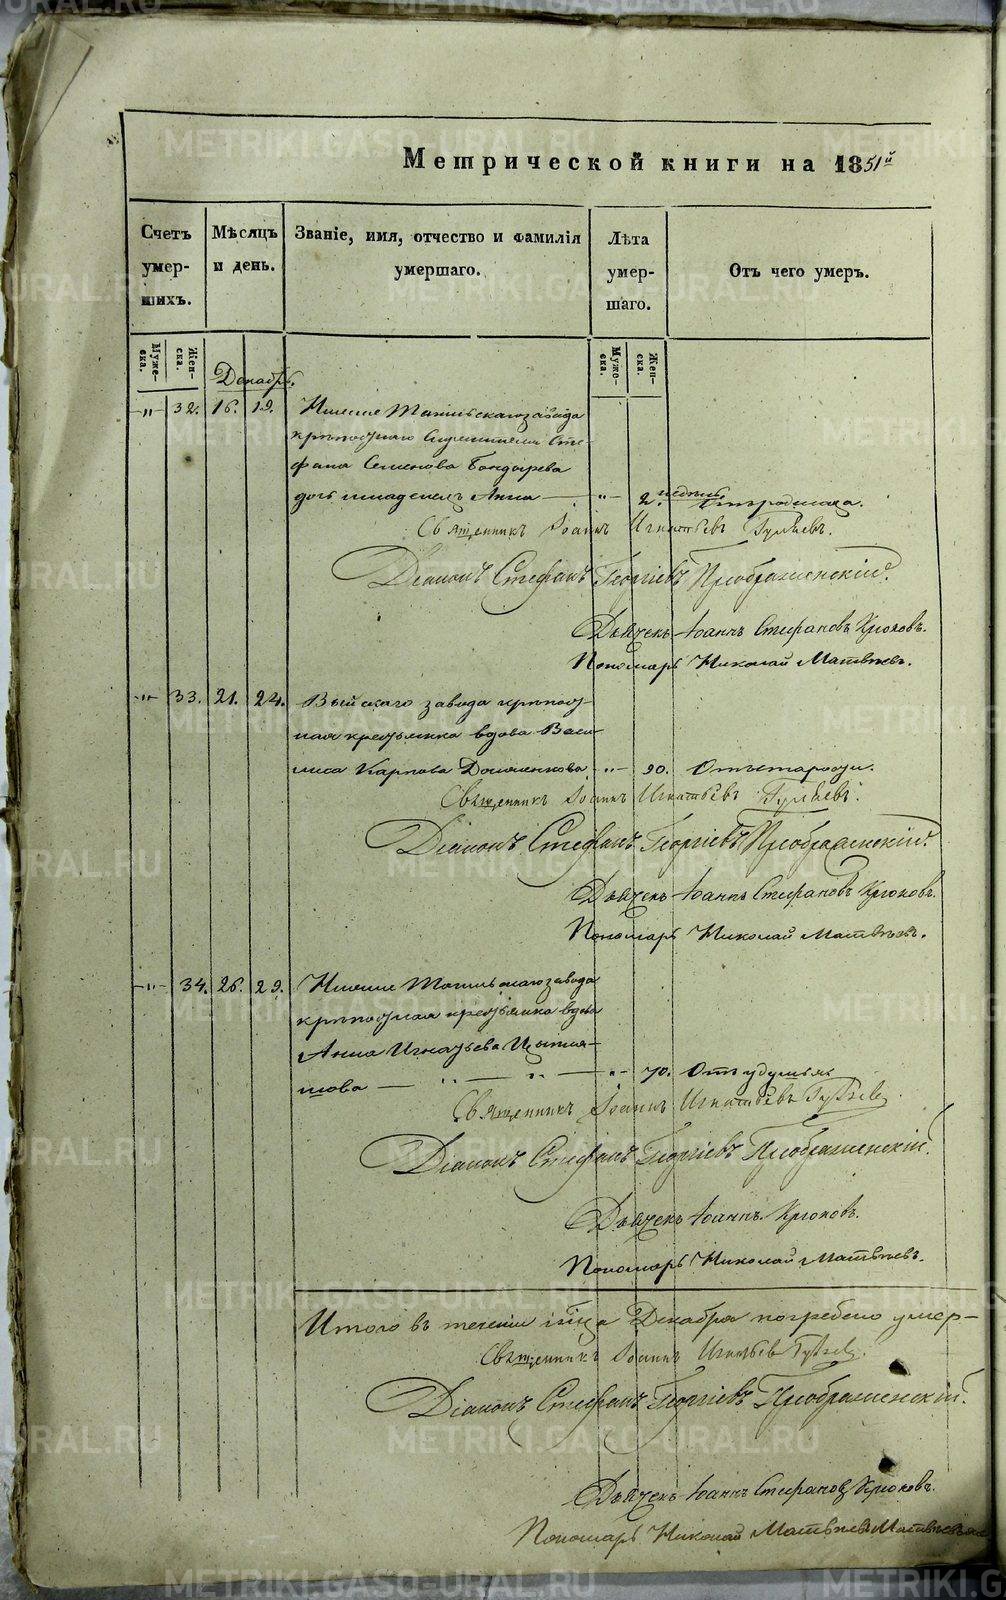 Метрической книги на 1851й
Счетъ умер-шихъ.
Мѣсяцъ и день.
Званіе, имя, отчество и фамилія умершаго.
Лѣта умер-шаго.
Отъ чего умеръ.
Муже-ска.
Жен-ска.
Муже-ска.
Жен-ска.
Декабрь.
„ 32. 16. 19. Нижне Тагильскаго завода
крѣпостнаго Сте-
фана Семенова Бондырева
дочь младенецъ Анна — „ 2. недѣль.
Священникъ Іоаннъ Игнатьевъ Гуляевъ.
Діаконъ Стефанъ Георгіевъ Преображенскій.
Дьячекъ Іоаннъ Стефановъ Крюковъ.
Пономарь Николай Матвѣевъ.
„ 33. 21. 24. Выйскаго завода крѣпост-
ная крестьянка вдова Васи-
лиса Карпова „ 90. Отъ старости.
Священникъ Іоаннъ Игнатьевъ Гуляевъ.
Діаконъ Стефанъ Георгіевъ Преображенскій.
Дьячекъ Іоаннъ Стефановъ Крюковъ.
Пономарь Николай Матвѣевъ.
„ 34. 26. 29. Нижне Тагильскаго завода
крѣпостная крестьянка вдова
Анна Игнатьева
шова — „ „ „ 70. Отъ удушья
Священникъ Іоаннъ Игнатьевъ Гуляевъ.
Діаконъ Стефанъ Георгіевъ Преображенскій.
Дьячекъ Іоаннъ Крюковъ.
Пономарь Николай Матвѣевъ.
Итого въ теченіи мѣсяца Декабря погребено умер-
Священникъ Іоаннъ Игнатьевъ Гуляевъ.
Діаконъ Стефанъ Георгіевъ Преображенскій.
Дьячекъ Іоаннъ Стефановъ Крюковъ.
Пономарь Николай Матвѣевъ
METRIKI.GASO-URAL.RU